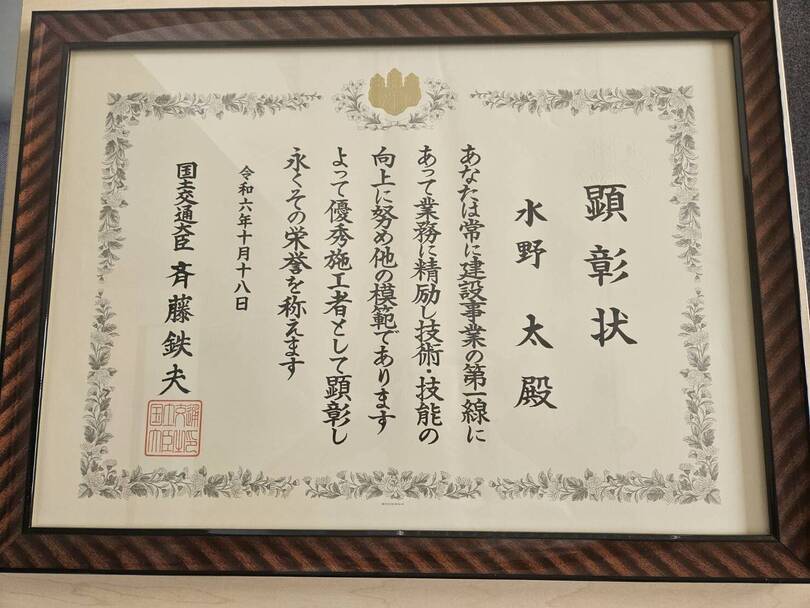 顕彰状
水野 太 殿
あなたは常に建設事業の第一線に
あって業務に精励し技術・技能の
向上に努め他の模範であります
よって優秀施工者として顕彰し
永くその栄誉を称えます
令和六年十月十八日
国土交通大臣 斉藤鉄夫
国土交通大臣之印